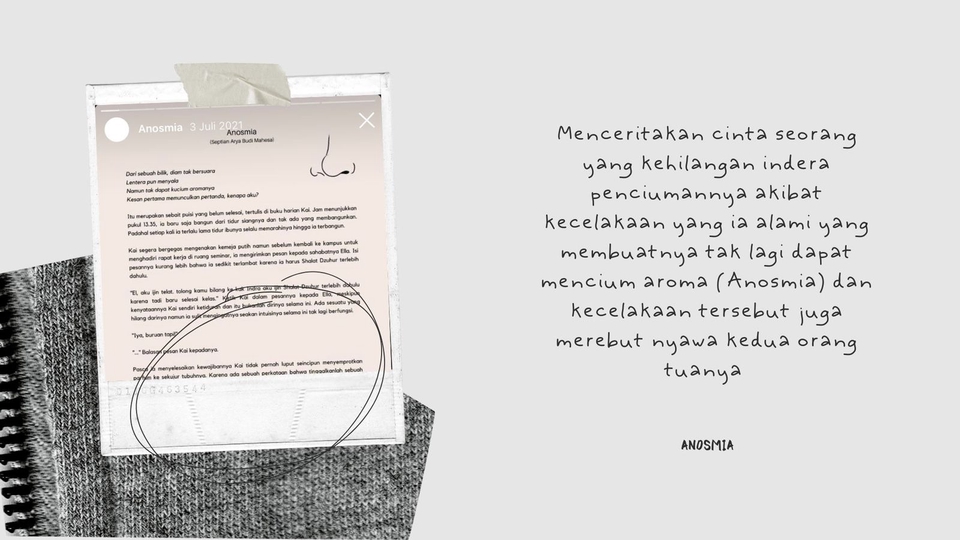 Anosmia 3 Juli 2021
Anosmia
(Septian Arya Budi Mahesa)
Dari sebuah bilik, diam tak bersuara
Lentera pun menyala
Namun tak dapat kucium aromanya
Kesan pertama memunculkan pertanda, kenapa aku?
Itu merupakan sebait puisi yang belum selesai, tertulis di buku harian Kai. Jam menunjukkan
pukul 13.35, ia baru saja bangun dari tidur siangnya dan tak ada yang membangunkan.
Padahal setiap kali ia terlalu lama tidur ibunya selalu memarahinya hingga ia terbangun.
Kai segera bergegas mengenakan kemeja putih namun sebelum kembali ke kampus untuk
menghadiri rapat kerja di ruang seminar, ia mengirimkan pesan kepada sahabatnya Ella. Isi
pesannya kurang lebih bahwa ia sedikit terlambat karena ia harus Shalat Dzuhur terlebih
dahulu.
"El, aku ijin telat, tolong kamu bilang ke kak Indra aku ijin Shalat Dzuhur terlebih dahulu
karena tadi baru selesai kelas." Ketik Kai dalam pesannya kepada Ella, meskipun
kenyataannya Kai sendiri ketiduran dan itu bukanlah dirinya selama ini. Ada sesuatu yang
hilang darinya namun ia sulit mengingatnya seakan intuisinya selama ini tak lagi berfungsi.
"Iya, buruan tapi!"
"..." Balasan pesan Kai kepadanya.
Pasca ia menyelesaikan kewajibannya Kai tidak pernah luput seincipun menyemprotkan
parfum ke sekujur tubuhnya. Karena ada sebuah perkataan bahwa tinggalkanlah sebuah
Menceritakan cinta seorang
yang kehilangan indera
penciumannya akibat
kecelakaan yang ia alami yang
membuatnya tak lagi dapat
mencium aroma (Anosmia) dan
kecelakaan tersebut juga
merebut nyawa kedua orang
tuanya
ANOSMIA